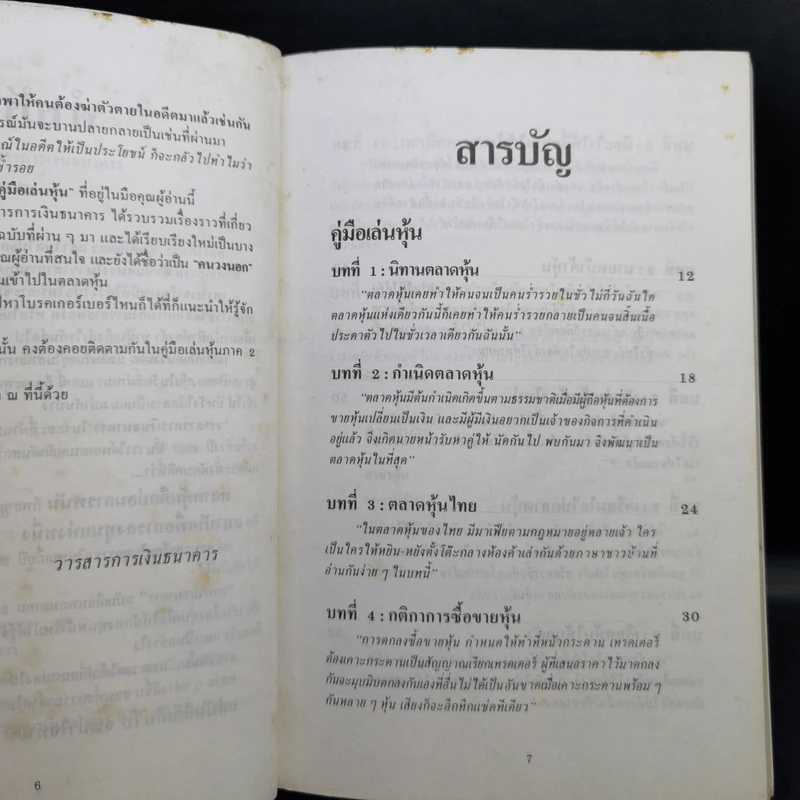 พาให้คนต้องฆ่าตัวตายในอดีตมาแล้วเช่นกัน
รณ์มันจะบานปลายกลายเป็นเช่นที่ผ่านมา
ณ์ในอดีตให้เป็นประโยชน์ ก็จะกลัวไปทำไมว่า
ซ้ำรอย
คู่มือเล่นหุ้น" ที่อยู่ในมือคุณผู้อ่านนี้
ารการเงินธนาคาร ได้รวบรวมเรื่องราวที่เกี่ยว
ฉบับที่ผ่าน ๆ มา และได้เรียบเรียงใหม่เป็นบาง
ณผู้อ่านที่สนใจ และยังได้ชื่อว่าเป็น "คนวงนอก"
นเข้าไปในตลาดหุ้น
ปหาโบรคเกอร์เบอร์ไหนก็ได้ที่ก็แนะนำให้รู้จัก
นั้น คงต้องคอยติดตามกันในคู่มือเล่นหุ้นภาค 2
ณ ที่นี้ด้วย
วารสารการเงินธนาคาร
6
สารบัญ
คู่มือเล่นหุ้น
บทที่ 1 : นิทานตลาดหุ้น 12
"ตลาดหุ้นเคยทำให้คนจนเป็นคนร่ำรวยในชั่วไม่กี่วันฉันใด
ตลาดหุ้นแห่งเดียวกันนี้ก็เคยทำให้คนร่ำรวยกลายเป็นคนจนสิ้นเนื้อ
ประดาตัวไปในชั่วเวลาเดียวกันฉันนั้น"
บทที่ 2 : กำเนิดตลาดหุ้น 18
"ตลาดหุ้นมีต้นกำเนิดเกิดขึ้นตามธรรมชาติเมื่อมีผู้ถือหุ้นที่ต้องการ
ขายหุ้นเปลี่ยนเป็นเงิน และมีผู้มีเงินอยากเป็นเจ้าของกิจการที่ดำเนิน
อยู่แล้ว จึงเกิดนายหน้ารับหาคู่ให้ นัดกันไป พบกันมา จึงพัฒนาเป็น
ตลาดหุ้นในที่สุด"
บทที่ 3 : ตลาดหุ้นไทย 24
"ในตลาดหุ้นของไทย มีมาเฟียตามกฎหมายอยู่หลายเจ้า ใคร
เป็นใครให้หยิน-หยังตั้งโต๊ะกลางห้องค้าเล่ากันด้วยภาษาชาวบ้านที่
อ่านกันง่าย ๆ ในบทนี้"
บทที่ 4 : กติกาการซื้อขายหุ้น 30
"การตกลงซื้อขายหุ้น กำหนดให้ทำที่หน้ากระดาน เทรดเดอร์
ต้องเคาะกระดานเป็นสัญญาณเรียกเทรดเดอร์ ผู้ที่เสนอราคาไว้มาตกลง
กันจะมุบมิบตกลงกันเองที่อื่นไม่ได้เป็นอันขาดเมื่อเคาะกระดานพร้อม ๆ
กันหลาย ๆ หุ้น เสียงก็จะอึกทึกแซ่ดทีเดียว"
7